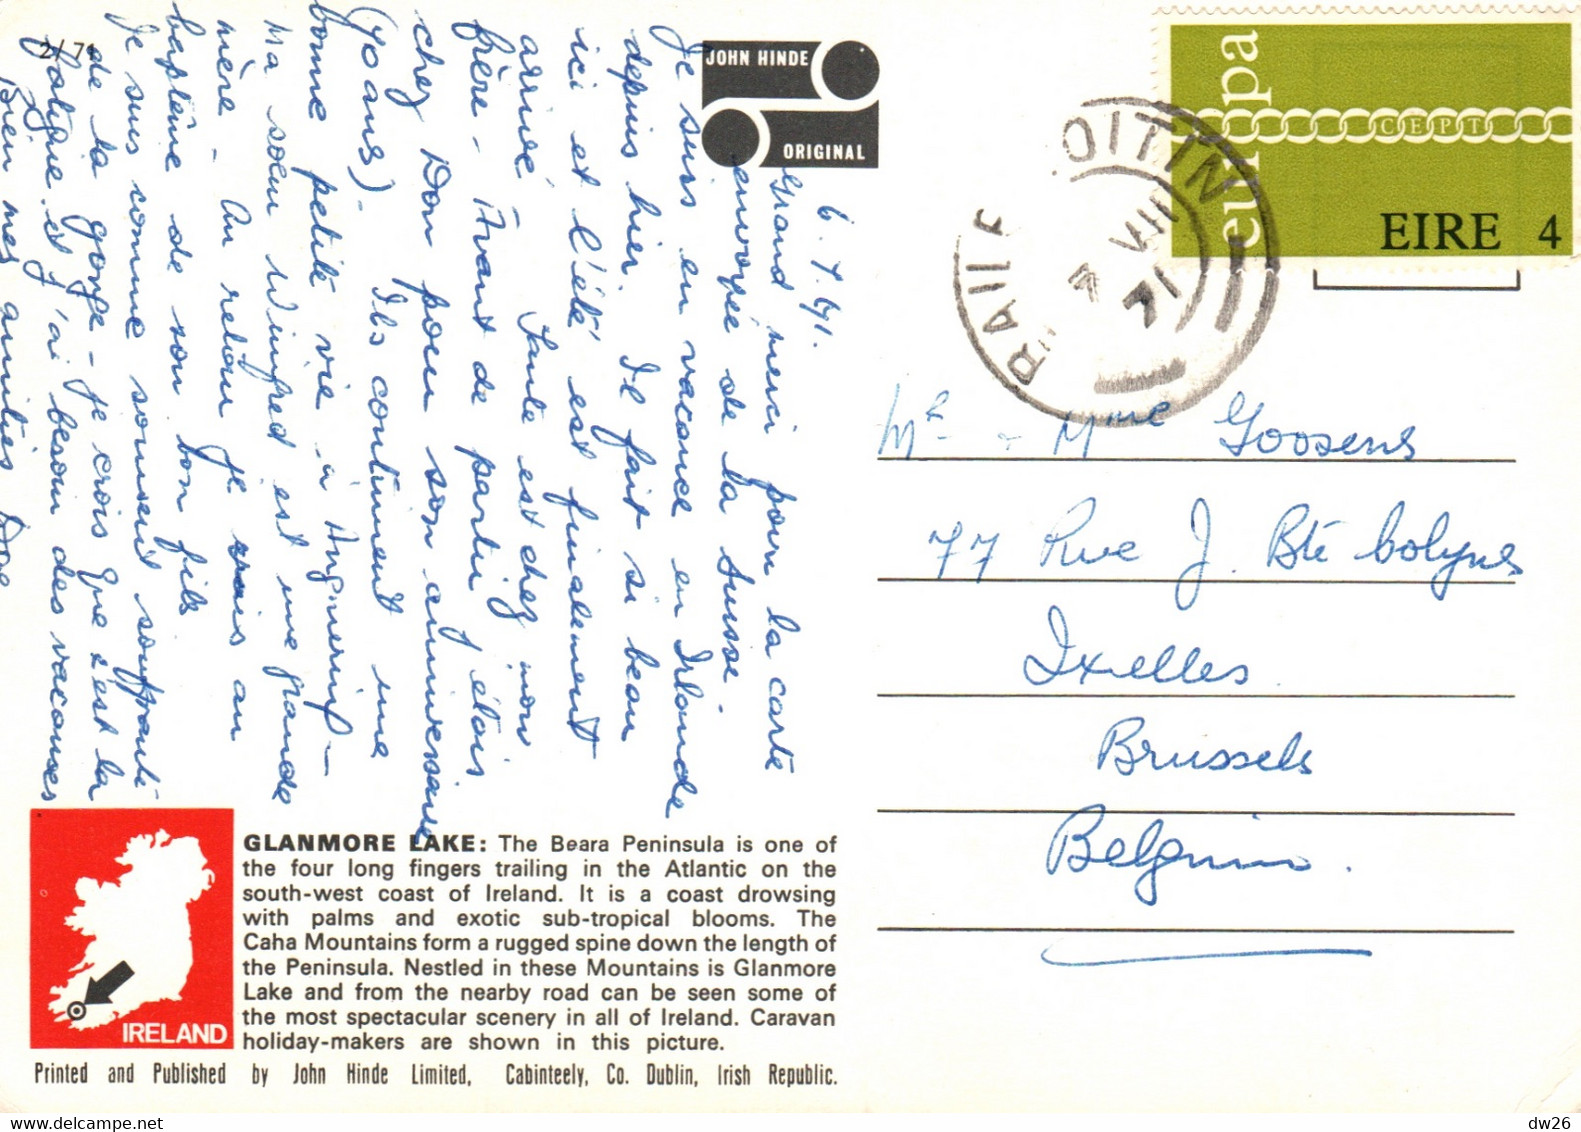 2/71
JOHN HINDE
ORIGINAL
6.7.71.
Grand merci pour la carte
envoyée de la Suisse.
Je suis en vacance en Irlande
depuis hier. Il fait si beau
ici et l'été est finalement
arrivé. Tante est chez mon
frère - Avant de partir j'étais
chez Don pour son anniversaire
(40 ans) - Ils continuent une
bonne petite vie à
Ma soeur Winifred est une grande
mère - Au retour je vais au
baptême de son bon fils
Je suis comme souvent souffrante
de la gorge - je crois que c'est la
fatigue et j'ai besoin des vacances
Bien mes amitiés
europa
CEPT
EIRE 4
BAILE
OITIN
7 VII
71
Mr & Mme Goosens
77 Rue J. Bte Colyns
Ixelles
Brussels
Belgium.
IRELAND
GLANMORE LAKE: The Beara Peninsula is one of
the four long fingers trailing in the Atlantic on the
south-west coast of Ireland. It is a coast drowsing
with palms and exotic sub-tropical blooms. The
Caha Mountains form a rugged spine down the length of
the Peninsula. Nestled in these Mountains is Glanmore
Lake and from the nearby road can be seen some of
the most spectacular scenery in all of Ireland. Caravan
holiday-makers are shown in this picture.
Printed and Published by John Hinde Limited, Cabinteely, Co. Dublin, Irish Republic.
www.delcampe.net
dw26